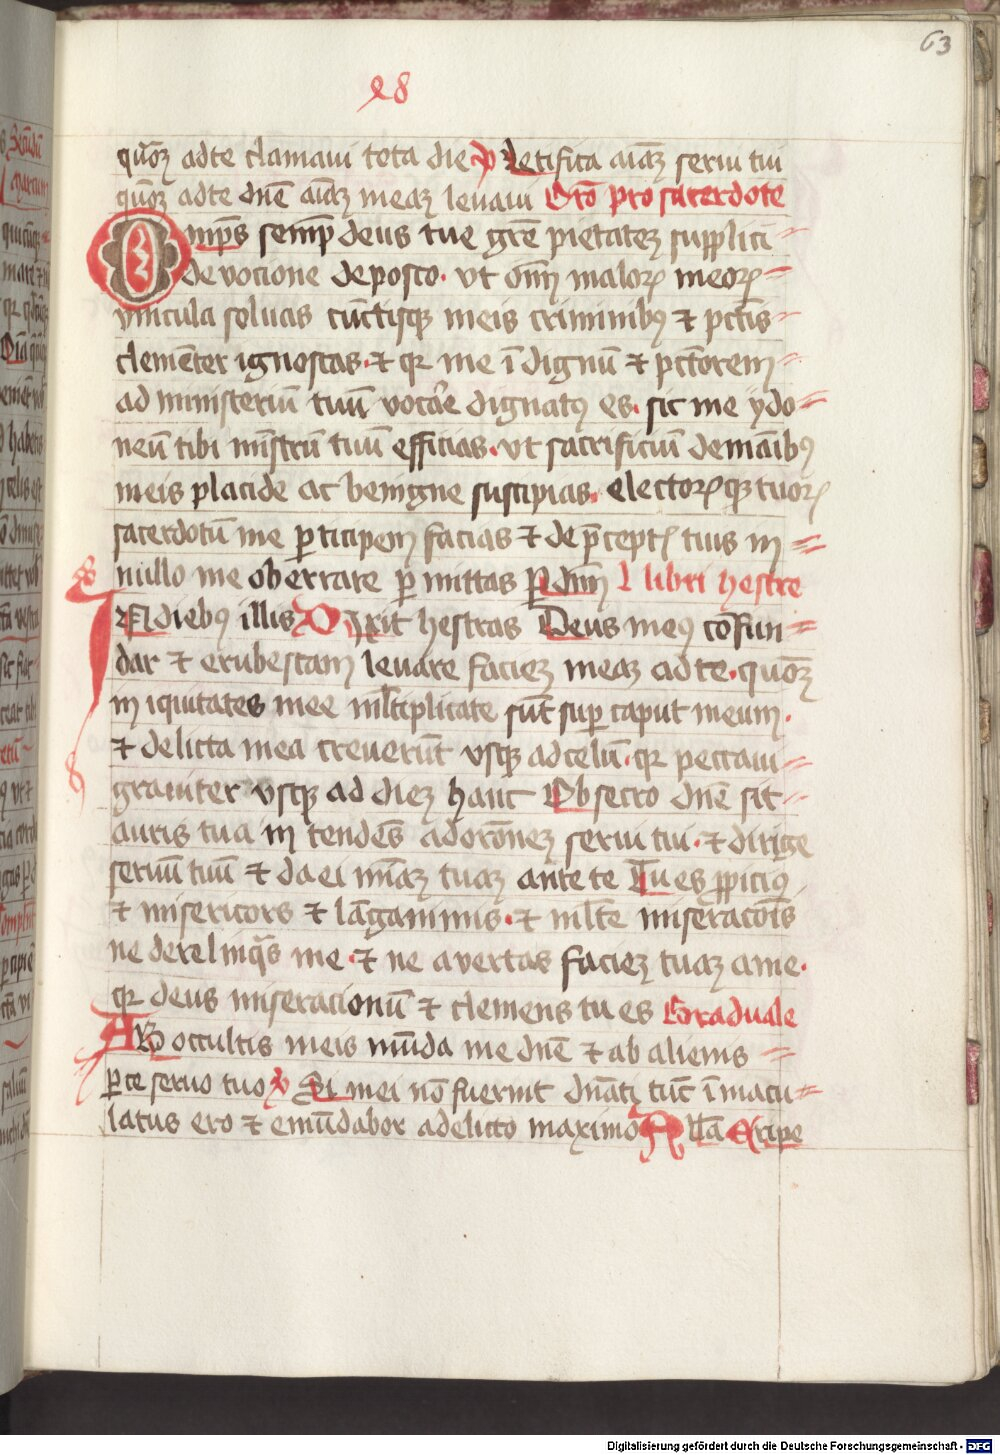 63
48
quō℥ adte clamaui tota die ℣ Letifica aīa℥ serui tui
quō℥ adte dn̄e aīa℥ mea℥ leuaui Orō pro sacerdote
Omp̄s semp̄ deus tue grē pietate℥ supplici
deuocione deposco · vt om̄ malorꝝ meorꝝ
vincula soluas cūctisqꝫ meis criminibꝰ ⁊ pctīs
clemēter ignoscas · ⁊ qr me īdignū ⁊ pctōrem
ad ministeriū tuū vocāe dignatꝰ es · sic me ydo
neū tibi mīstrū tuū efficias · vt sacrificiū demāibꝰ
meis placide ac benigne suscipias · electorꝝqꝫ tuorꝝ
sacerdotū me ꝑticipem facias ⁊ de p̄ceptꝭ tuis in
nullo me oberrare ꝑmittas P dn̄m L libri hestre
IN diebꝰ illis Dixit hestras Deus meꝰ cōfun
dar ⁊ erubescam leuare facie℥ mea℥ ad te · quō℥
iniquitates mee ml̄tiplicate sūt sup̄ caput meum ·
⁊ delicta mea creuerūt vsqꝫ adcelū · qr peccaui
grauiter vsqꝫ ad die℥ hanc Obsecro dn̄e sit
auris tua intendēs adorōne℥ serui tui · ⁊ dirige
seruū tuū ⁊ da ei mīa℥ tua℥ ante te Tu es ꝓpiciꝰ
⁊ misericors ⁊ lāganimis · ⁊ ml̄te miseracōis
ne derelinqͣs me · ⁊ ne auertas facie℥ tua℥ ame ·
qr deus miseracionū ⁊ clemens tu es Graduale
AB occultis meis mūda me dn̄e ⁊ ab alienis
ꝑce seruo tuo ℣ Si mei nō fuerint dn̄ati tūc īmacu
latus ero ⁊ emūdabor adelicto maximo Allā Eripe
Digitalisierung gefördert durch die Deutsche Forschungsgemeinschaft - DFG